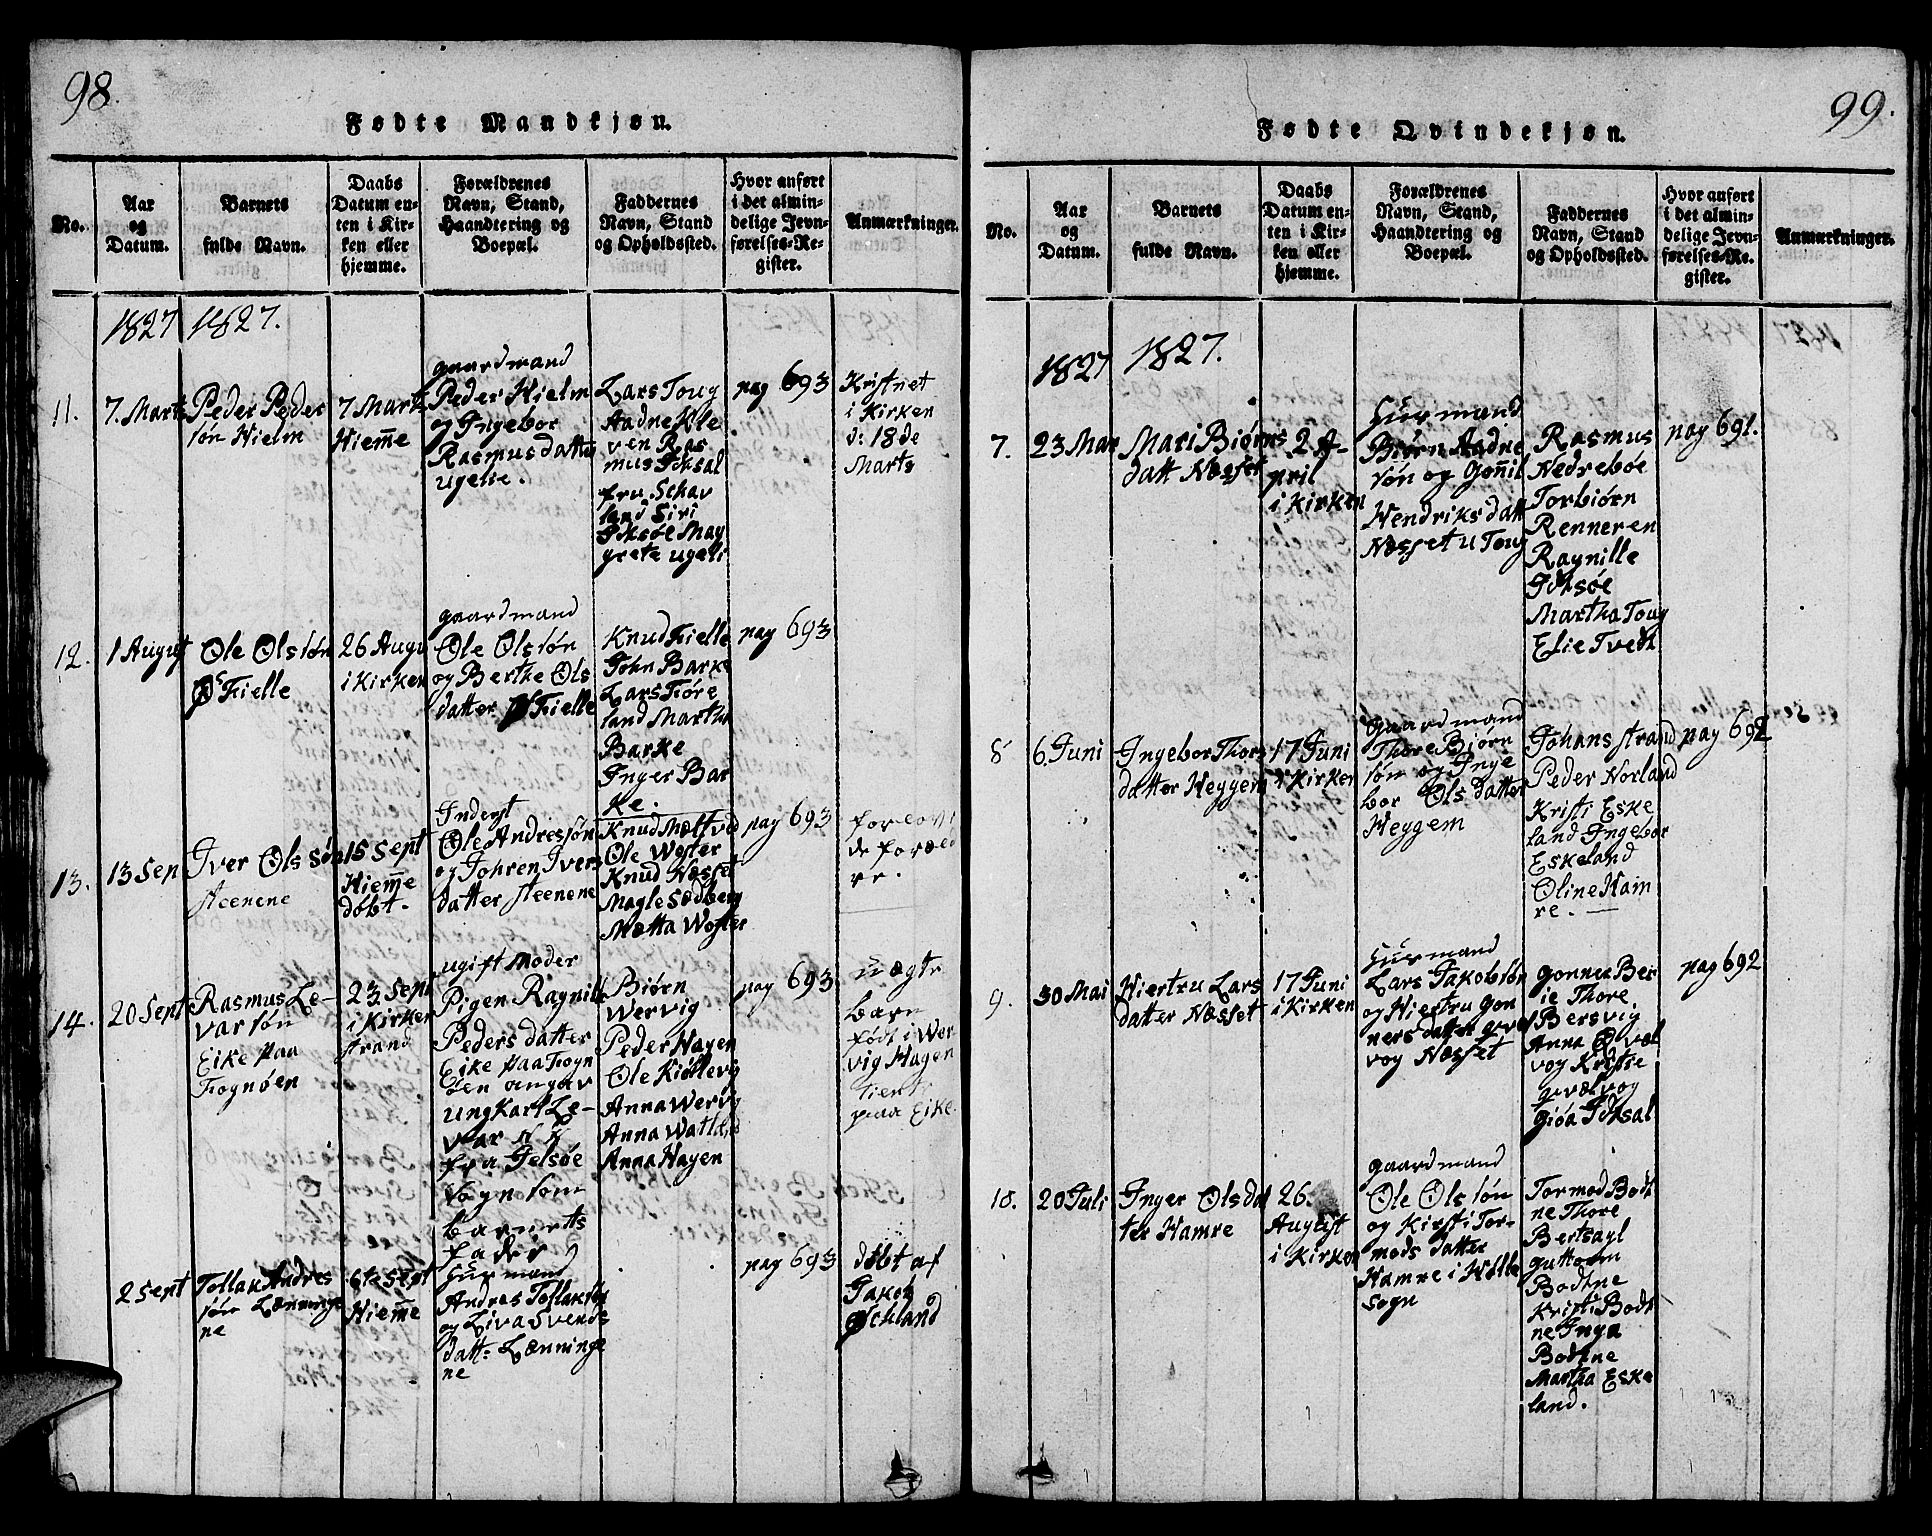 98.
Fødte Mandkjøn.
No.
Aar
og
Datum.
Barnets
fulde Navn.
Daabs
Datum en-
ten i Kir-
ken eller
hjemme.
Forældrenes
Navn, Stand,
Haandtering og
Boepæl.
Faddernes
Navn, Stand
og Opholdssted.
Hvor anført
i det almin-
delige Jevn-
førelses-Re-
gister.
Anmærkninger.
1827
1827.
11.
7. Marts
Peder Peder
søn Hielm
7 Marts
Hiem̅e
gaardmand
Peder Hielm
og Ingebor
Rasmusdatter
ugelie.
Lars Toug
Aadne Kle
ven Ras
mus Idsal
fru Schav
land Siri
Idsøe Mag
grete ugeli
pag 693
Kristnet
i Kirken
d: 18de
Marts
12.
1 August
Ole Olssøn
Fielle
26 Augu
i Kirken
gaardmand
Ole Olssøn
og Berthe Ols
datter Fielle
Knud Fielle
John Barke
Lars Tiøre
land Martha
Barke
Inger Bar
ke.
pag 693
13.
13 Sep
Iver Olssøn
steenene
15 Sept
Hiem̅e
døbt.
Inderst
Ole Andressøn
og Johren Ivers
datter steenene
Knud Mættvid
Ole Woster
Knud Næsset
Magle Sødberg
Metta Woster
pag 693
forlovt
de foræld
re.
14.
20 Sept
Rasmus Le-
varsøn
Eike paa
Fognøen
23 Sept
i Kirken
strand
ugift Moder
Pigen Ragnille
Peders datter
Eike paa Fogn
øen angav
ungkarl Le-
var N N
fra Jelsøe
sogn som
barnets
fader
Biørn
Wervig
Peder Hagen
Ole Kiøllevig
Anna Wervig
Anna Watland
Anna Hagen
pag 693
uægte
barn
født i Wer
vig Hagen
tient
paa Eike
2 Sept
Tollak Andres
søn Lænninge
ne
6te Sept
Hiem̅e
Huusmand
Andres Tollaksøn
og Liva Svends
datt: Lænninge
ne
pag 693
døbt af
Jakob
Schland
99.
Fødte Qvindekjøn.
No.
Aar
og
Datum.
Barnets
fulde Navn.
Daabs
Datum en-
ten i Kir-
ken eller
hjemme.
Forældrenes
Navn, Stand,
Haandtering og
Boepæl.
Faddernes
Navn, Stand
og Opholdssted.
Hvor anført
i det almin-
delige Jevn-
førelses-Re-
gister.
Anmærkninger.
1827
1827.
7.
23 Mar
Mari Biørns
datt Næsset
2 A-
pril
i Kirken
Huusmand
Biørn Aadne
søn og Gon̅il
Hendriksdatt
Næsset u Toug
Rasmus
Nedrebøe
Torbiørn
Renneren
Ragnille
Idsøe
Martha Toug
Elie Tvedt
pag 691.
8
6. Juni
Ingebor Thors
datter Heggem
17 Juni
i Kirken
Gaardmand
Thore Biørn
søn og Inge
bor Olsdatter
Heggem
Johans strand
Peder Norland
Kristi Eske
land Ingebor
Eskeland
Oline Ham
re.
pag 692
9.
30 Mai
Hiertru Lars
datter Næsset
17 Juni
i Kirken
Huusmand
Lars Jakobsøn
og Hiertru Gon
nersdatter qvæl
vog Næsset
Gonner Ber
ie Thore
Bersvig
Anna Qvæl
vog Kristie
qvælvog
Giøa Idsal
pag 692
10.
20 Juli
Inger Olsdat
ter Hamre
26.
August
i Kirken
gaardmand
Ole Olssøn
og Kirsti Tor-
mods datter
Hamre i Hølle
Sogn
Tormod Bodt
ne Thore
Bertsagl
guttorm
Bodtne
Kristi Bodt
ne Inga
Bodtne
Martha Eske
land.